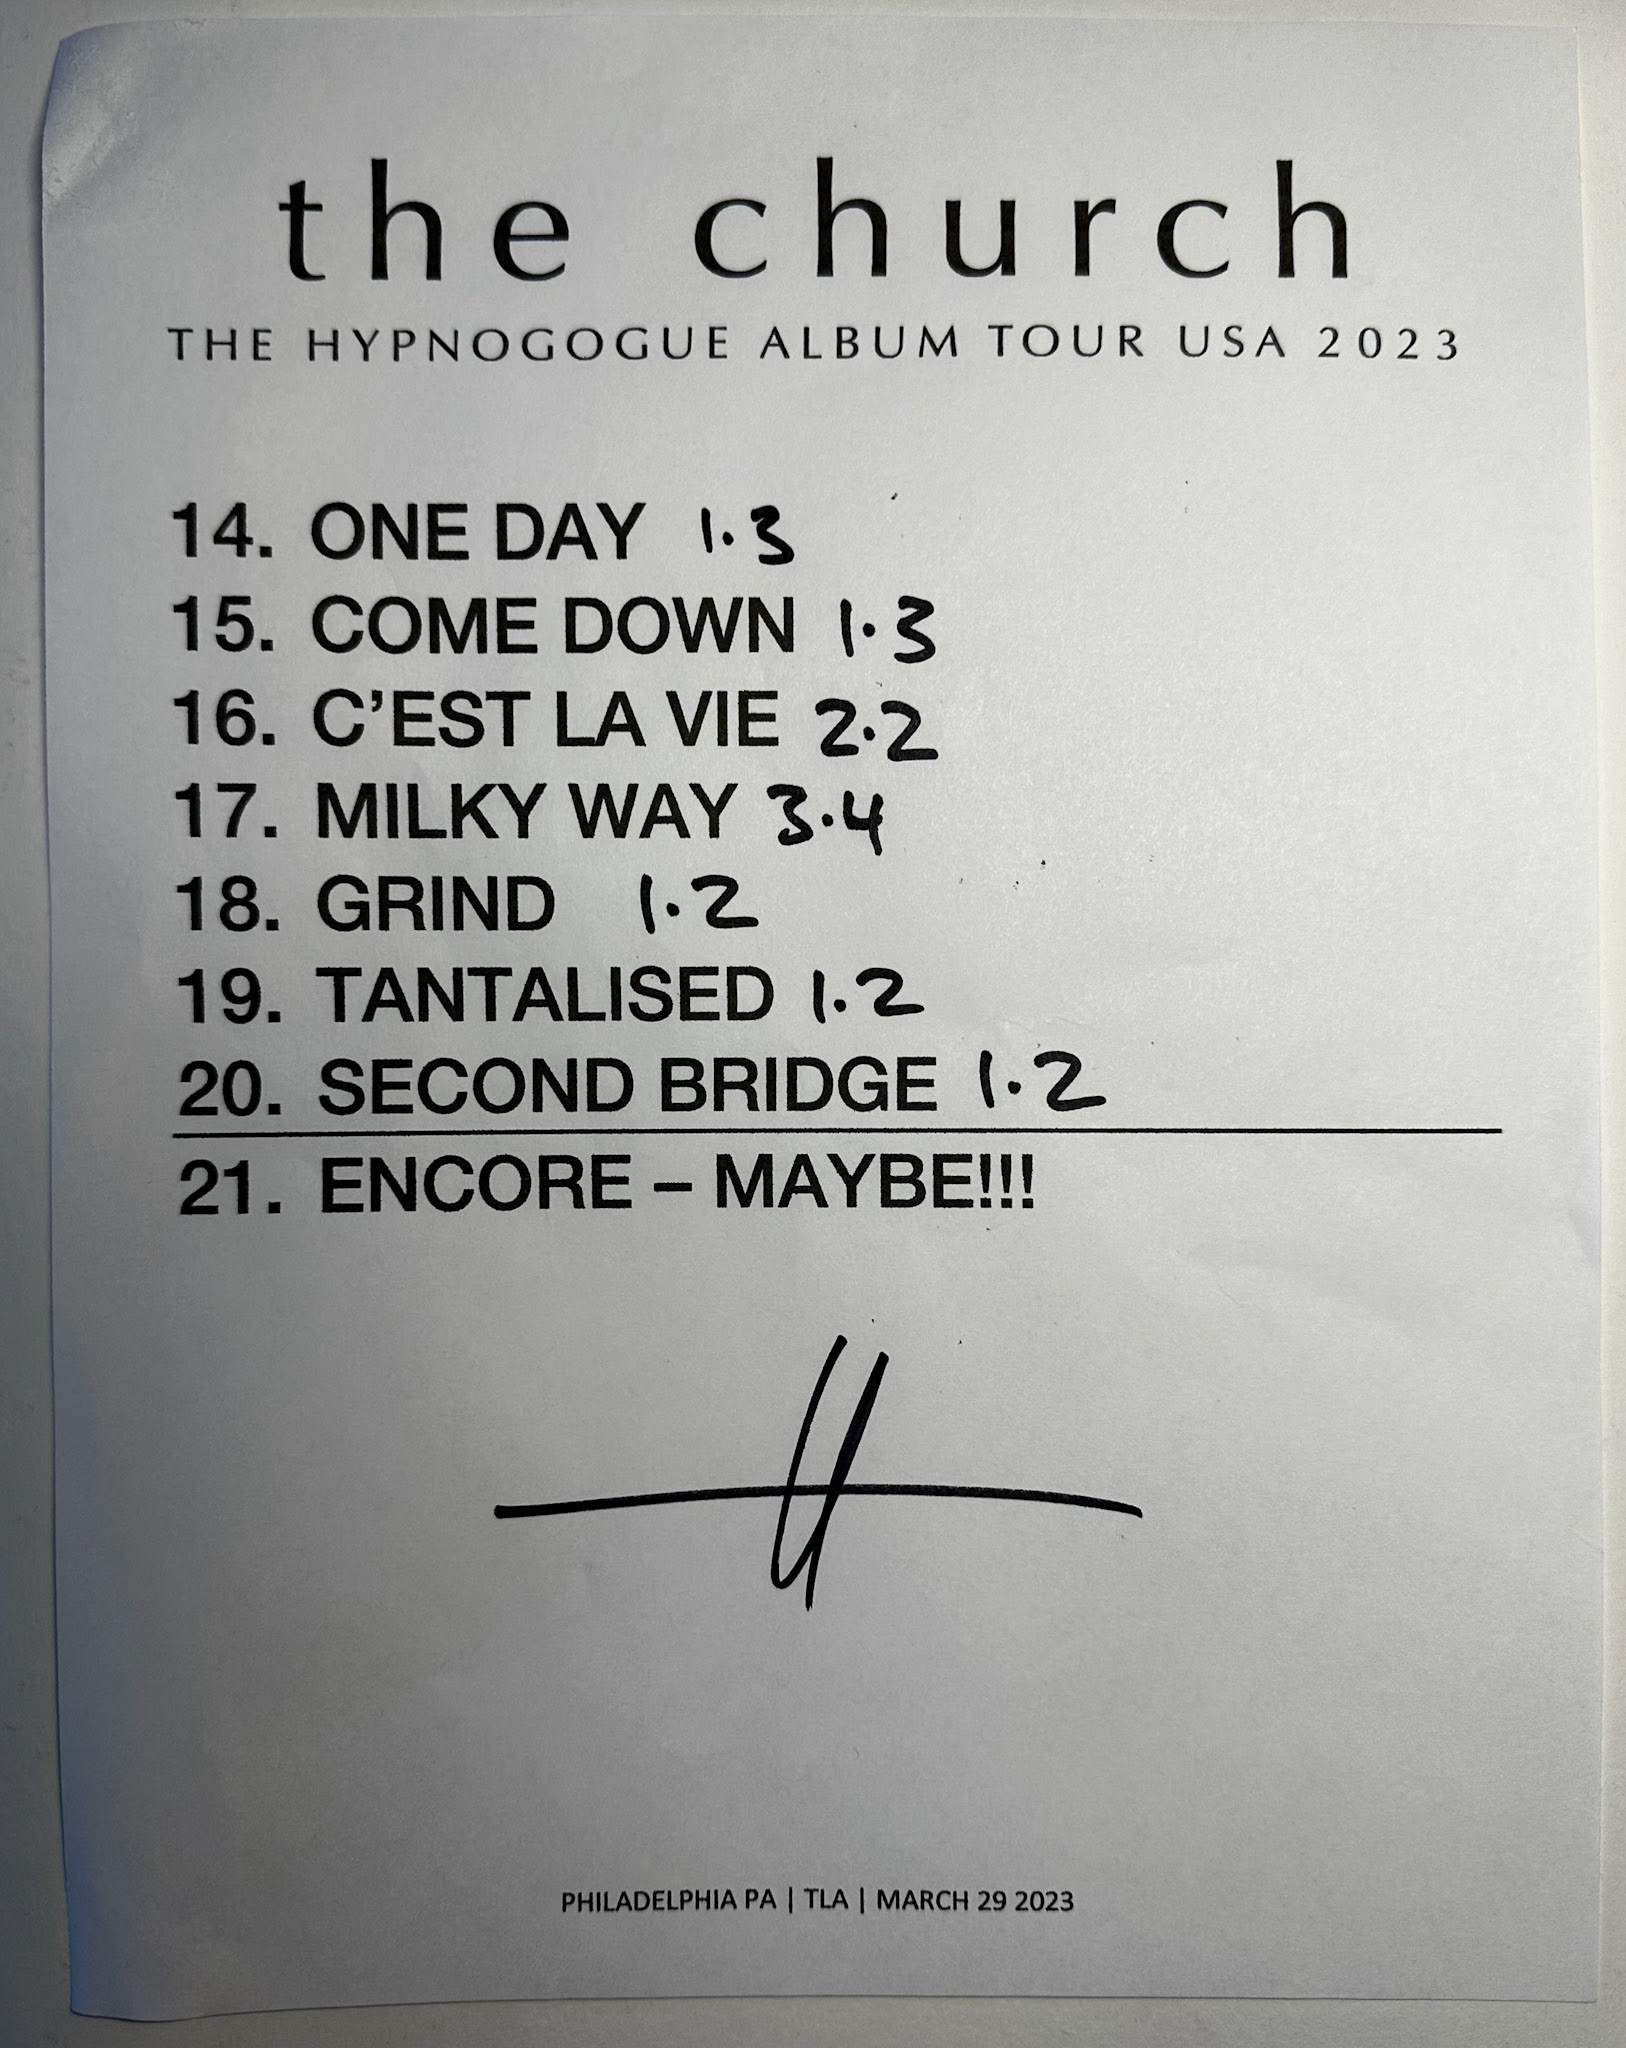 the church
THE HYPNOGOGUE ALBUM TOUR USA 2023
14. ONE DAY 1.3
15. COME DOWN 1.3
16. C’EST LA VIE 2.2
17. MILKY WAY 3.4
18. GRIND 1.2
19. TANTALISED 1.2
20. SECOND BRIDGE 1.2
21. ENCORE – MAYBE!!!
PHILADELPHIA PA | TLA | MARCH 29 2023